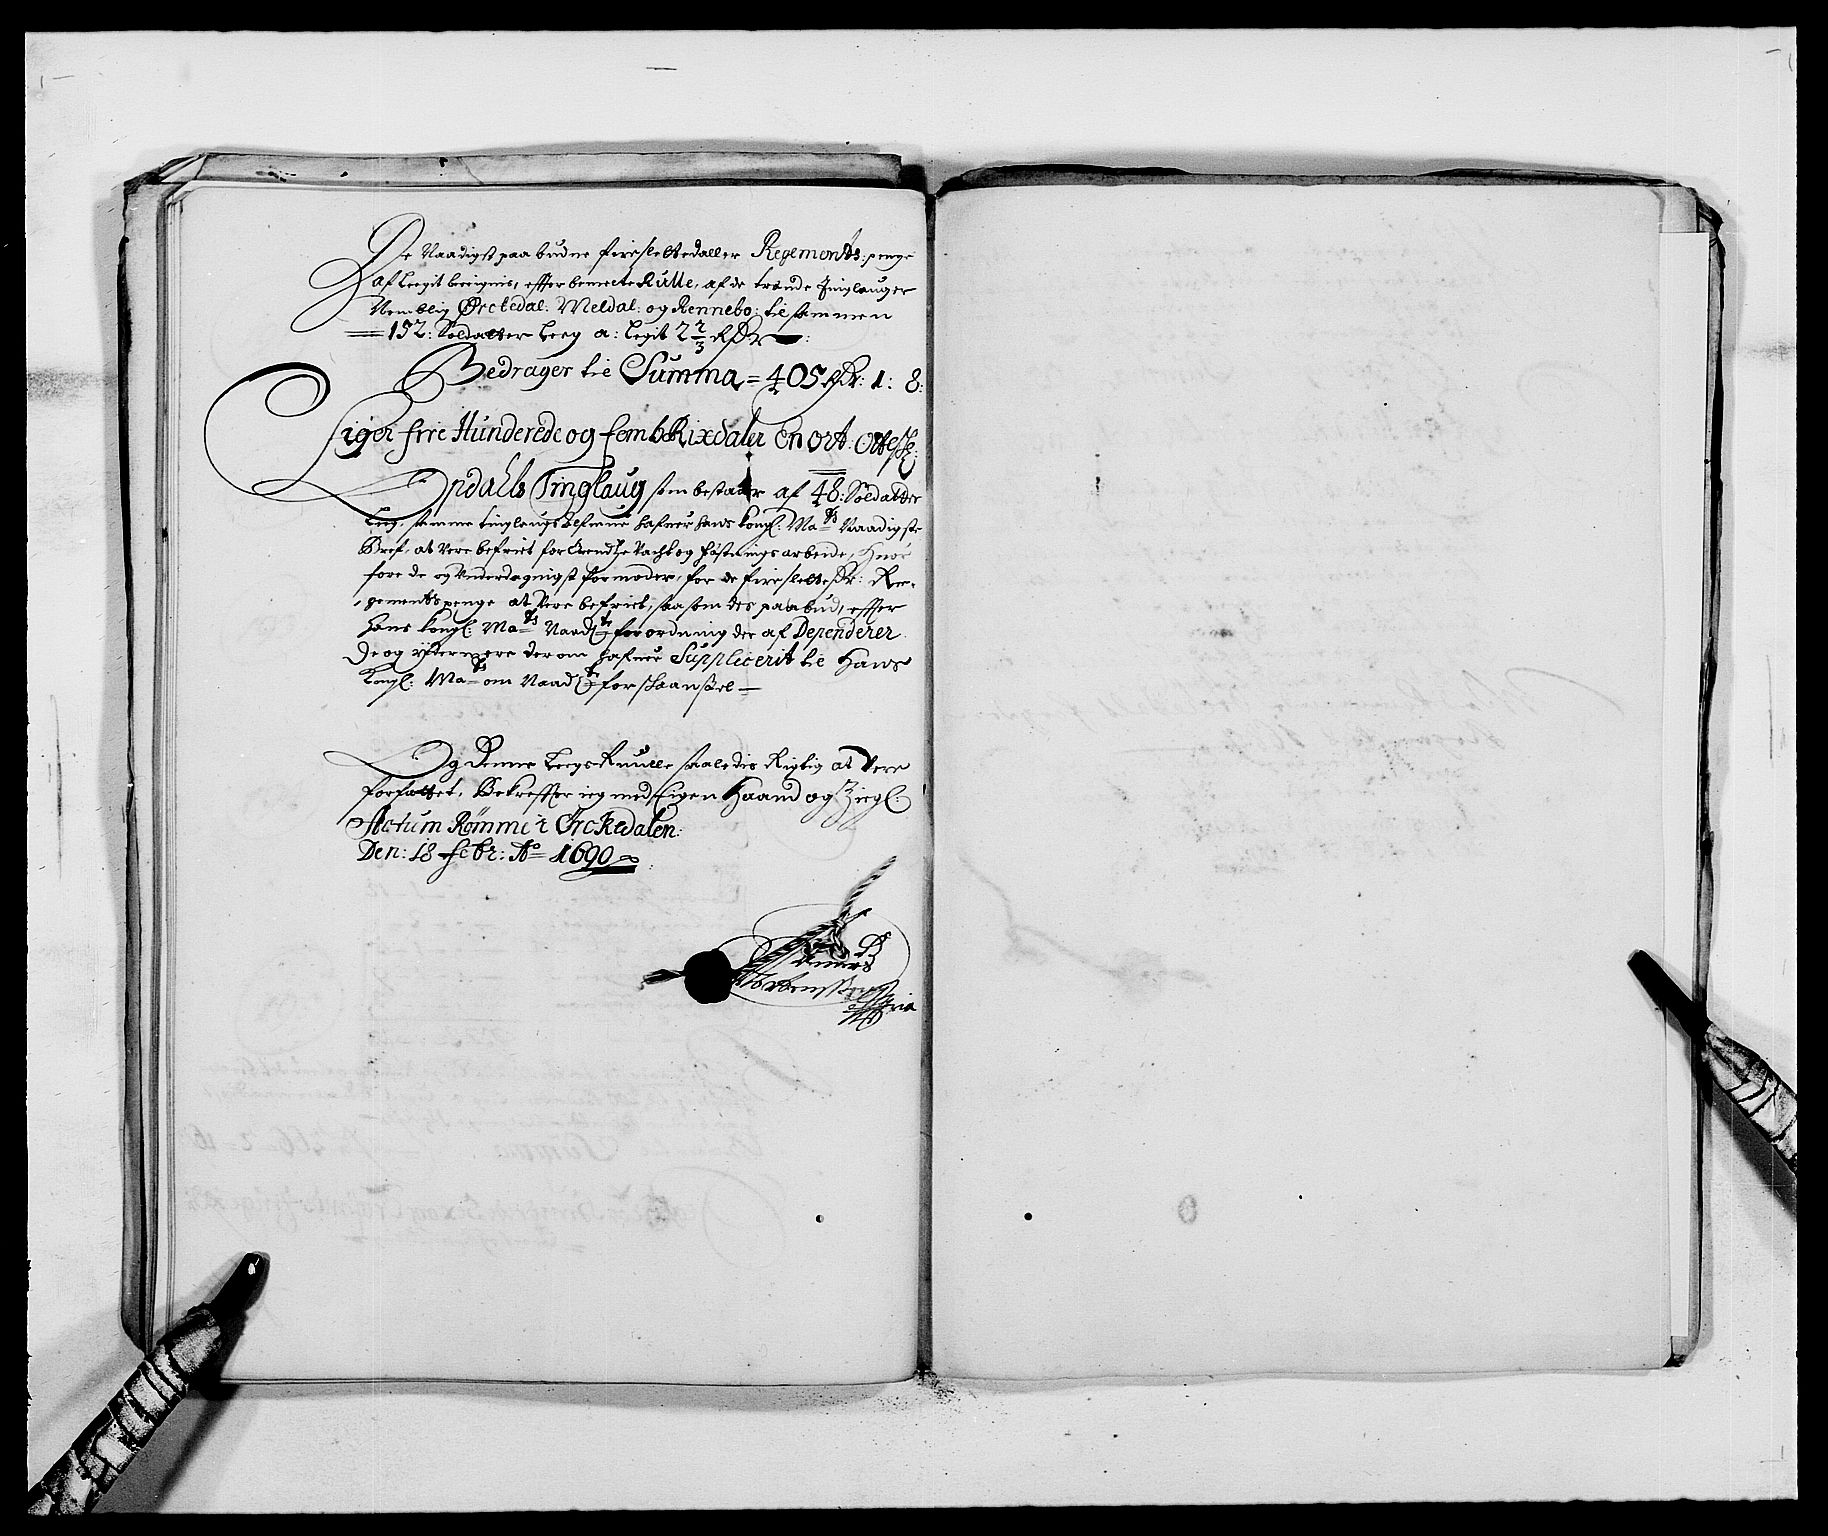 De Naadigst paabudne fire slettedaller Regements penge
af Leegit beregnis, effter bemelte Rulle, af de trende Tinglauger
Nemblig Ørckedal: Meldal: og Rennebo: til sammen
152: Soldatter Leeg a: Legit 2 2/3 Rdr
Bedrager til Summa = 405 Rdr: 1: 8:
Siger fire Hunderede og femb Rixdaler En ort: Otte sk:
Opdahls Tinglaug som bestaar af 48: Soldatter
Leg, samme tinglaugs hafuer hans kongl: Ma:ts Naadigste
Bref, at vere befriet for Grendtze Vacht og fæstnings arbeide, Huor
fore de og Underdanigst formoder, for de fire slettedr: Re-
gements penge at vere befriet, saasom des paabud, effter
Hans kongl: Ma:ts Naad:te forordning der af Dependerer
De og ydermere derom hafuer Supplicerit til Hans
Kongl: Ma:ts om Naad:te forskaansel
Og Denne Legs Ruulle saaledis Rigtig at vere
forfattet, Bekreffter ieg med Eigen Haand og Ziegl:
Actum Rømme i Ørckedalen:
Den: 18 Febr: Ao 1690